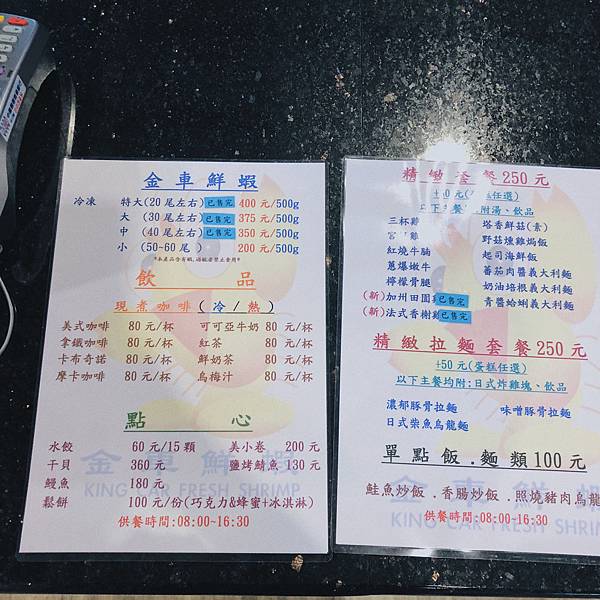 金車鮮蝦
冷凍 特大(20尾左右) 已售完 400元/500g
大 (30尾左右) 已售完 375元/500g
中 (40尾左右) 已售完 350元/500g
小 (50~60尾) 200元/500g
*本產品含有蝦,過敏者禁止食用*
飲 品
現煮咖啡(冷/熱)
美式咖啡 80元/杯 可可亞牛奶 80元/杯
拿鐵咖啡 80元/杯 紅茶 80元/杯
卡布奇諾 80元/杯 鮮奶茶 80元/杯
摩卡咖啡 80元/杯 烏梅汁 80元/杯
點 心
水餃 60元/15顆 美小卷 200元
干貝 360元 鹽烤鯖魚 130元
鰻魚 180元
鬆餅 100元/份(巧克力&蜂蜜+冰淇淋)
供餐時間:08:00~16:30
金車鮮蝦
KING CAR FRESH SHRIMP
精緻套餐250元
任選)
以下主餐 附湯、飲品
三杯雞 塔香鮮菇(素)
雞 野菇燻雞焗飯
紅燒牛腩 起司海鮮飯
蔥爆嫩牛 蕃茄肉醬義大利麵
檸檬骨腿 奶油培根義大利麵
(新)加州田園 已售完 青醬蛤蜊義大利麵
(新)法式香榭 已售完
精緻拉麵套餐250元
+50元(蛋糕任選)
以下主餐均附:日式炸雞塊、飲品
濃郁豚骨拉麵 味噌豚骨拉麵
日式柴魚烏龍麵
單點飯.麵類100元
鮭魚炒飯.香腸炒飯.照燒豬肉烏龍
供餐時間:08:00~16:30
金車鮮蝦
KING CAR FRESH SHRIM